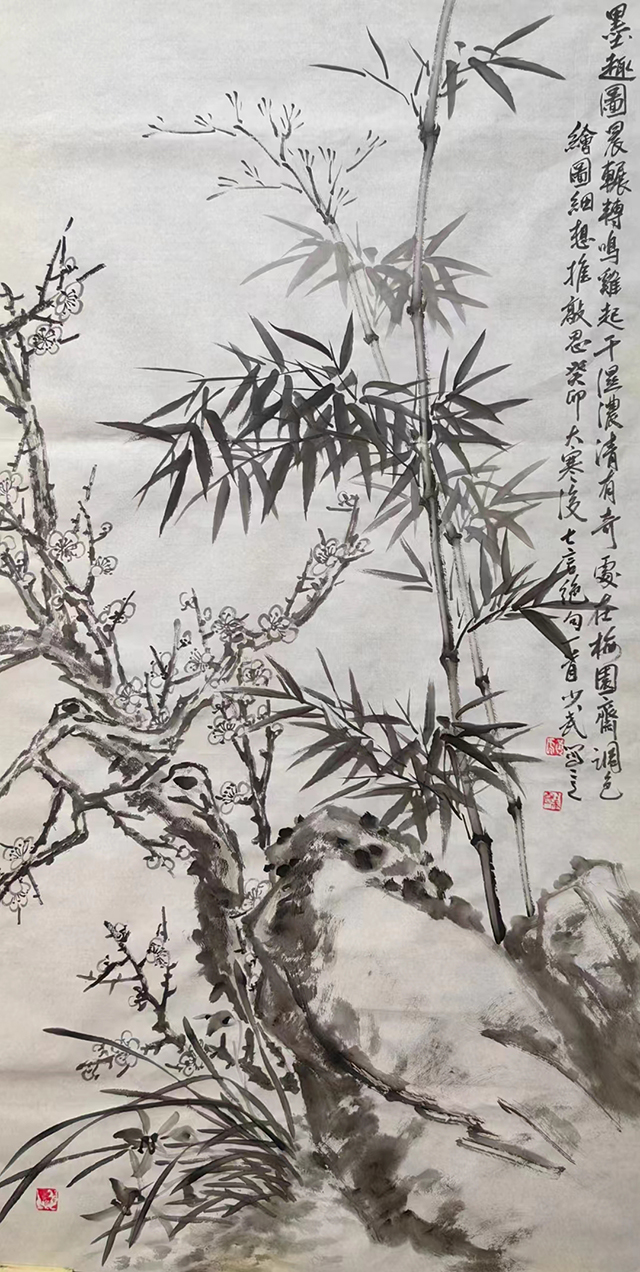 墨趣圖晨輾轉鳴雞起干濕濃清有奇處在梅園齋調色
繪圖細想推敲忍癸卯大寒後七言絕句一首少武寫之